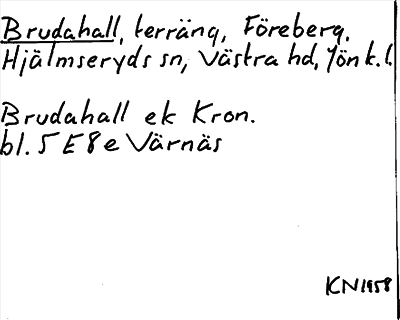 Brudahall, terräng, Föreberg,
Hjälmseryds sn, Västra hd, Jönk.l.
Brudahall ek Kron.
bl. 5 E 8 e Värnäs
KN1958